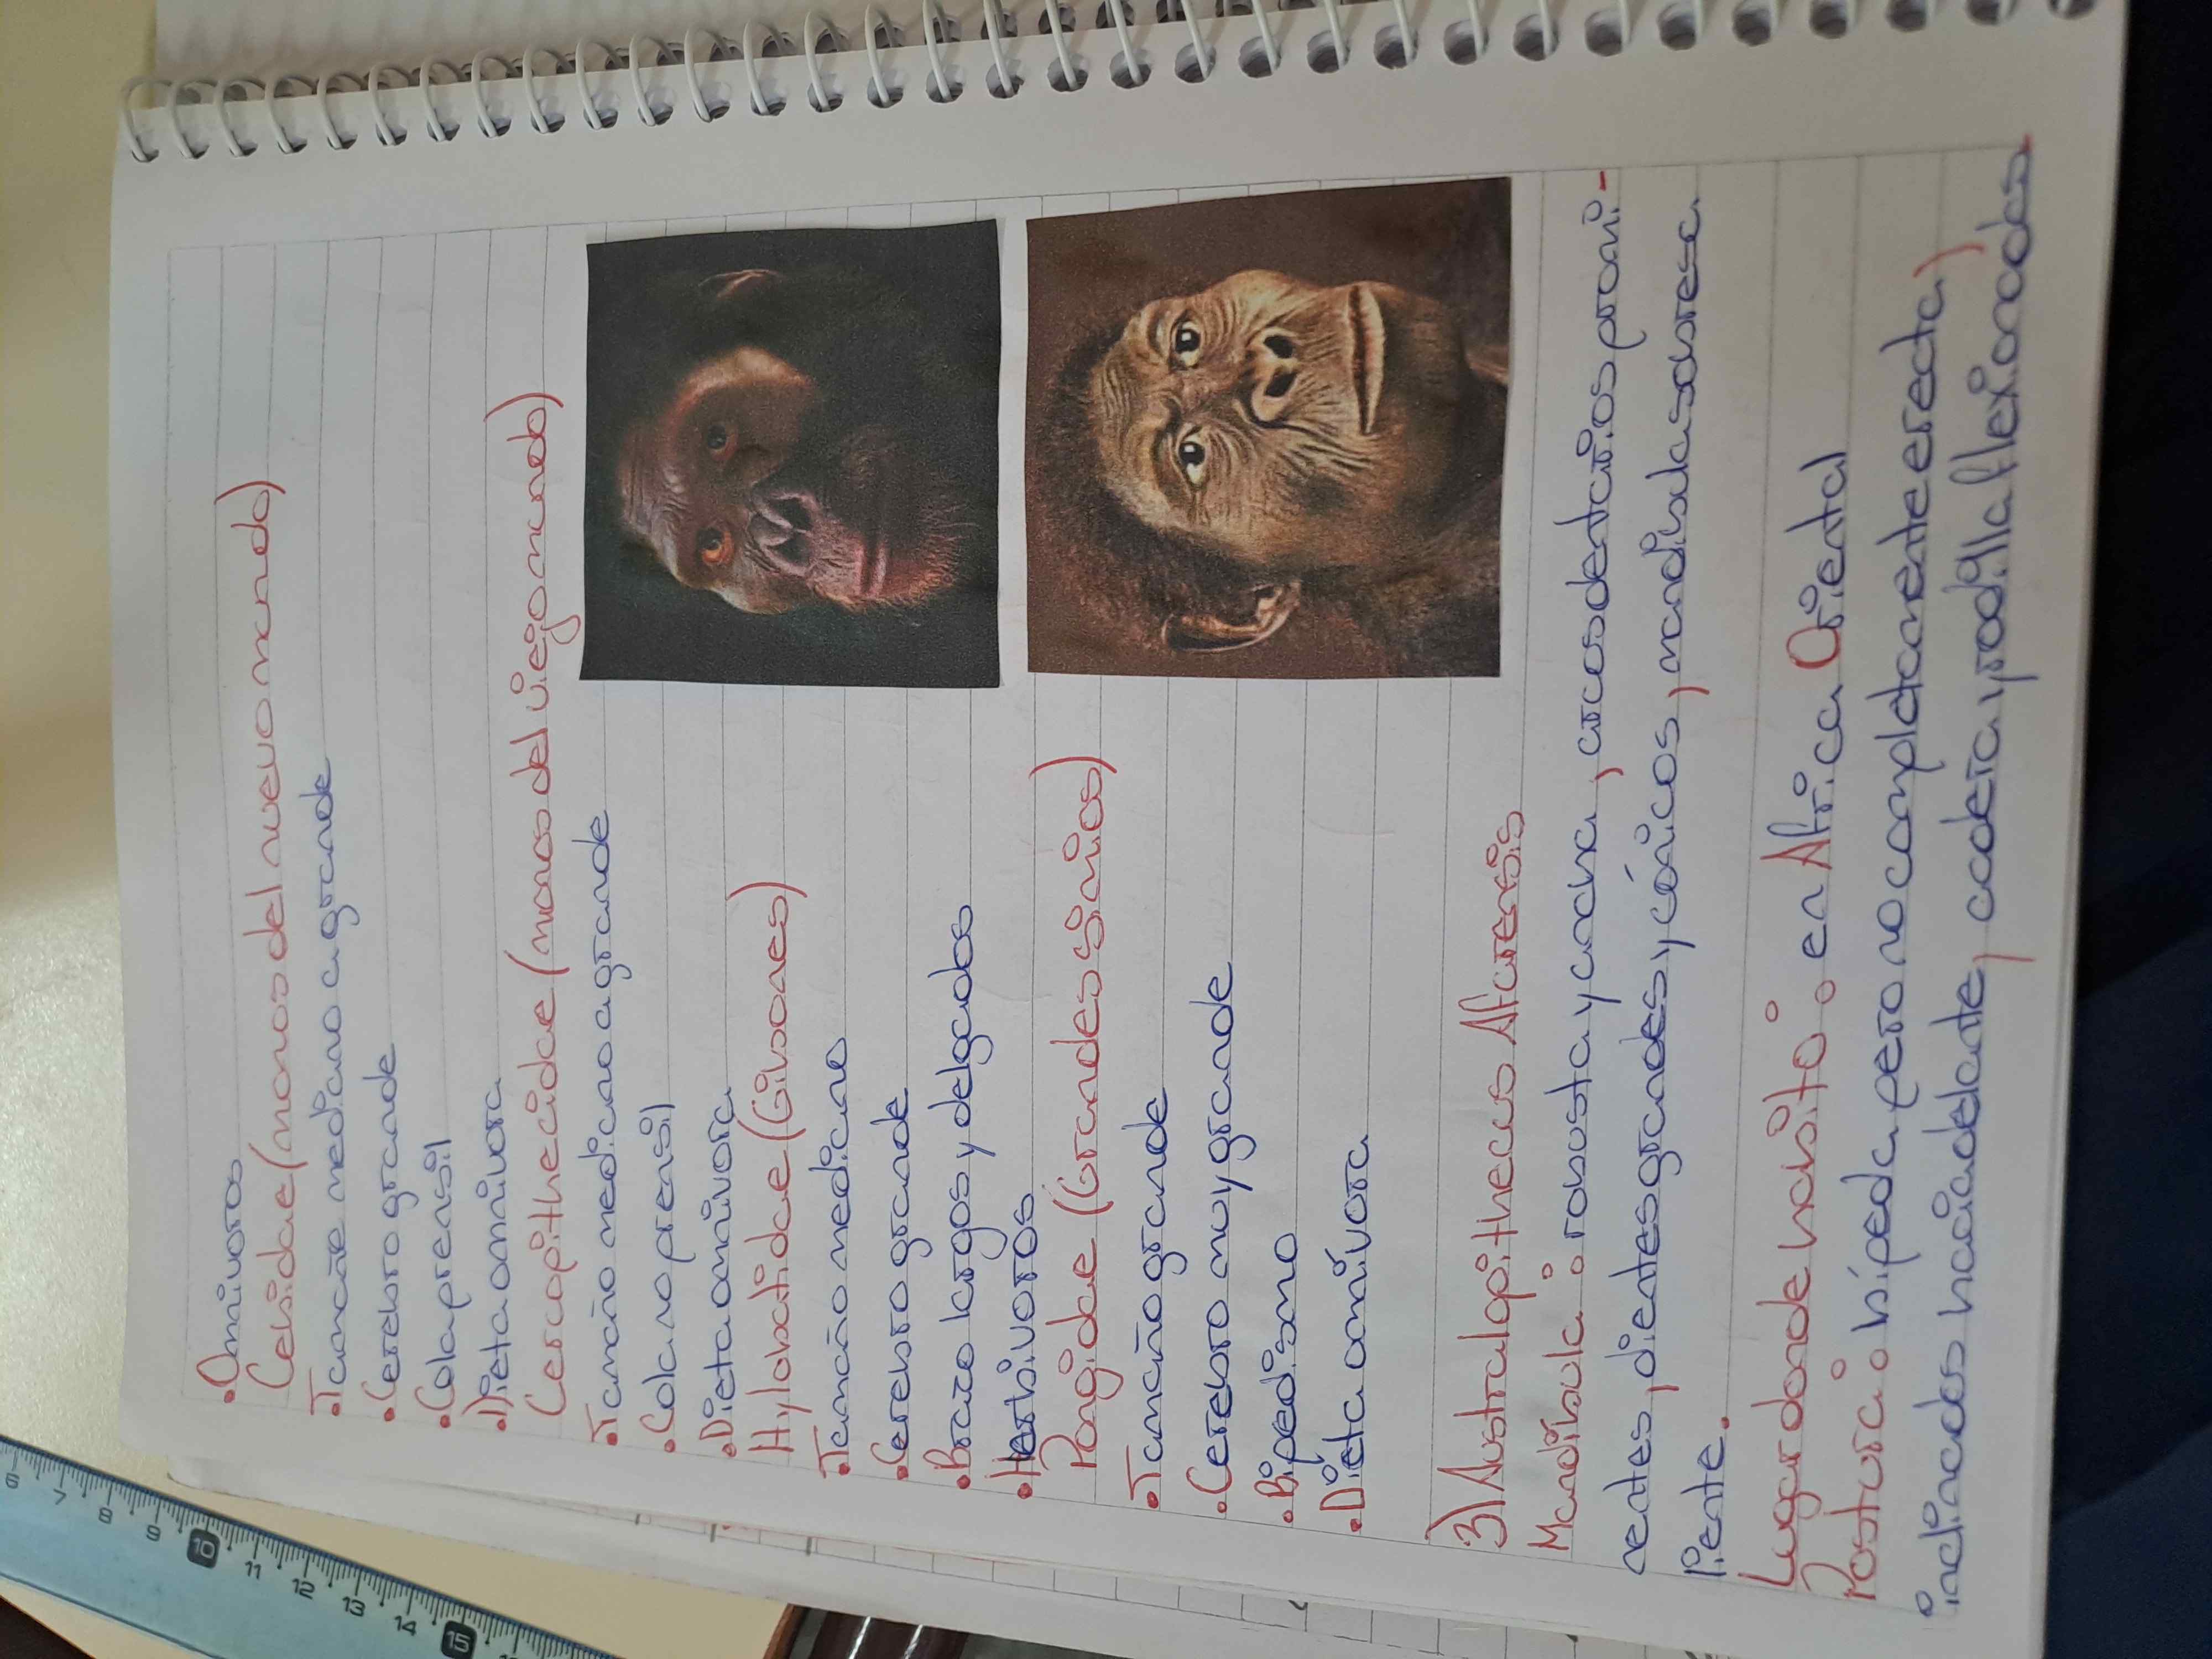 •Omnivoros
Cebidae (monos del nuevo mundo)
•Tamaño mediano a grande
•Cerebro grande
•Cola prensil
•Dieta omnivora
Cercopithecidae (monos del viejo mundo)
•Tamaño mediano a grande
•Cola no prensil
•Dieta omnívora
Hylobatidae (Gibones)
•Tamaño mediano
•Cerebro grande
•Brazo largos y delgados
•Herbivoros
Pongidae (Grandes simios)
•Tamaño grande
•Cerebro muy grande
•Bipedismo
•Dieta omnívora
3) Australopithecus Afarensis
Mandíbula: robusta y ancha, arcos dentarios promi-
nentes, dientes grandes y cónicos, mandibula sobresa
liente.
Lugar donde habitó: en Africa Oriental
Postura: bípeda pero no completamente erecta,
inclinados hacia delante, cadera y rodilla flexionadas
6 7 8 9 10 11 12 13 14 15